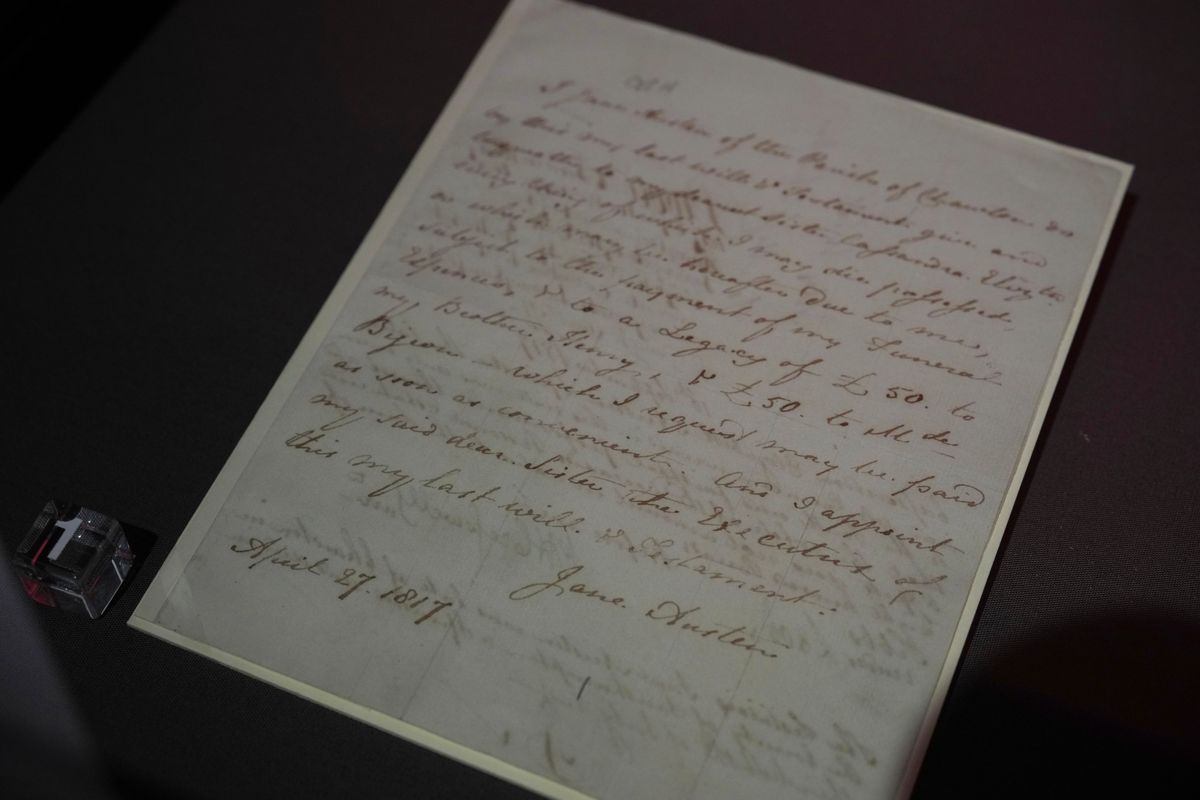 I Jane Austen of the Parish of Chawton do
by this my last will & Testament give and
bequeath to my dearest Sister Cassandra Elizth
every thing of which I may die possessed,
or which may be hereafter due to me,
subject to the payment of my Funeral
Expences, & to a Legacy of £50. to
my Brother Henry, & £50. to M de
Bijeon which I request may be paid
as soon as convenient. And I appoint
my said dear Sister the Executrix of
this my last will & Testament.
Jane Austen
April 27. 1817
1